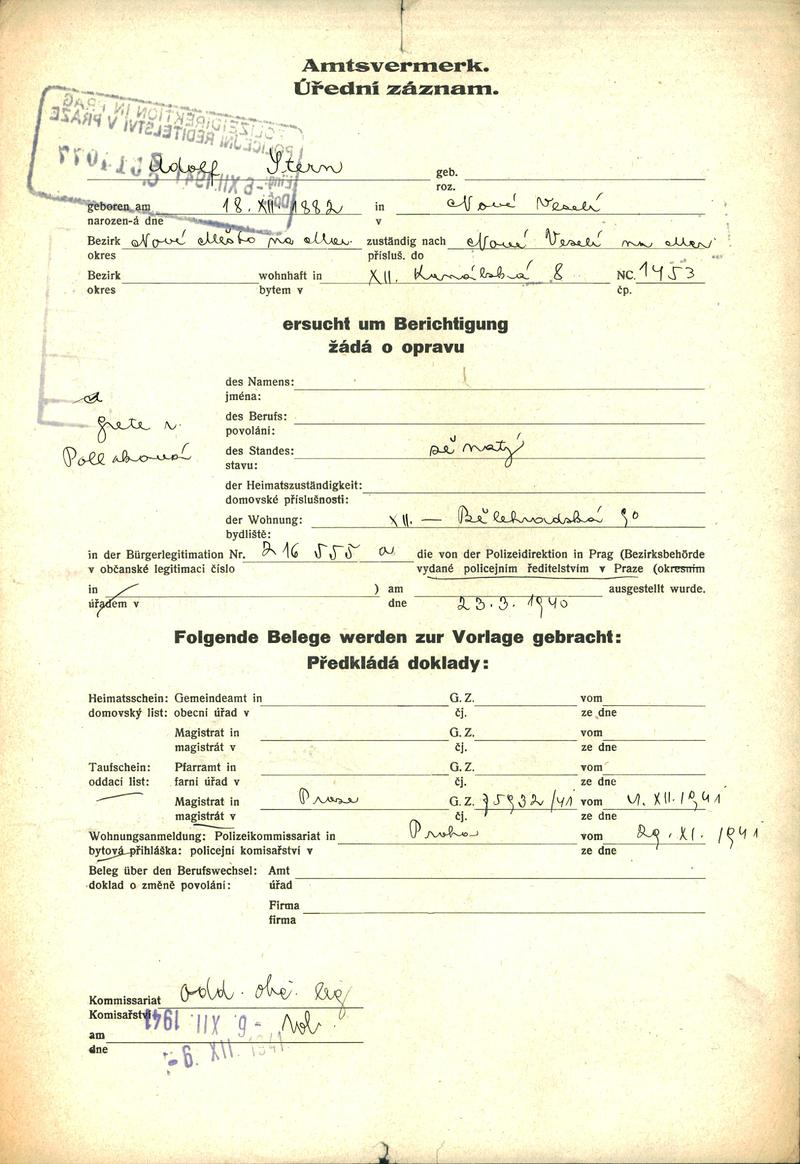 Amtsvermerk.
Úřední záznam.
POLIZEIDIREKTION IN PRAG
POLICEJNÍ ŘEDITELSTVÍ V PRAZE
Adolf Stern geb.
roz.
geboren am 18. XII. 1882 in Nové Veselí
narozen-á dne v
Bezirk Nové Město na Mor. zuständig nach Nové Veselí na Mor.
okres přísluš. do
Bezirk wohnhaft in XII. Kanálská 8 NC. 1453
okres bytem v čp.
ersucht um Berichtigung
žádá o opravu
des Namens:
jména:
a
Grete r.
Pollaková
des Berufs:
povolání:
des Standes: ženatý
stavu:
der Heimatszuständigkeit:
domovské příslušnosti:
der Wohnung: XII. — Bělehradská 90
bydliště:
in der Bürgerlegitimation Nr. 216 555 a die von der Polizeidirektion in Prag (Bezirksbehörde
v občanské legitimaci číslo vydané policejním ředitelstvím v Praze (okresním
in ) am ausgestellt wurde.
úřadem v dne 23. 3. 1940
Folgende Belege werden zur Vorlage gebracht:
Předkládá doklady:
Heimatsschein: Gemeindeamt in G. Z. vom
domovský list: obecní úřad v čj. ze dne
Magistrat in G. Z. vom
magistrát v čj. ze dne
Taufschein: Pfarramt in G. Z. vom
oddací list: farní úřad v čj. ze dne
Magistrat in Praze G. Z. 75932/41 vom 1. XII. 1941
magistrát v čj. ze dne
Wohnungsanmeldung: Polizeikommissariat in Praha vom 29. XI. 1941
bytová přihláška: policejní komisařství v ze dne
Beleg über den Berufswechsel: Amt
doklad o změně povolání: úřad
Firma
firma
Kommissariat odd. obč. leg
Komisařství -6. XII. 1941
am
dne -6. XII. 1941